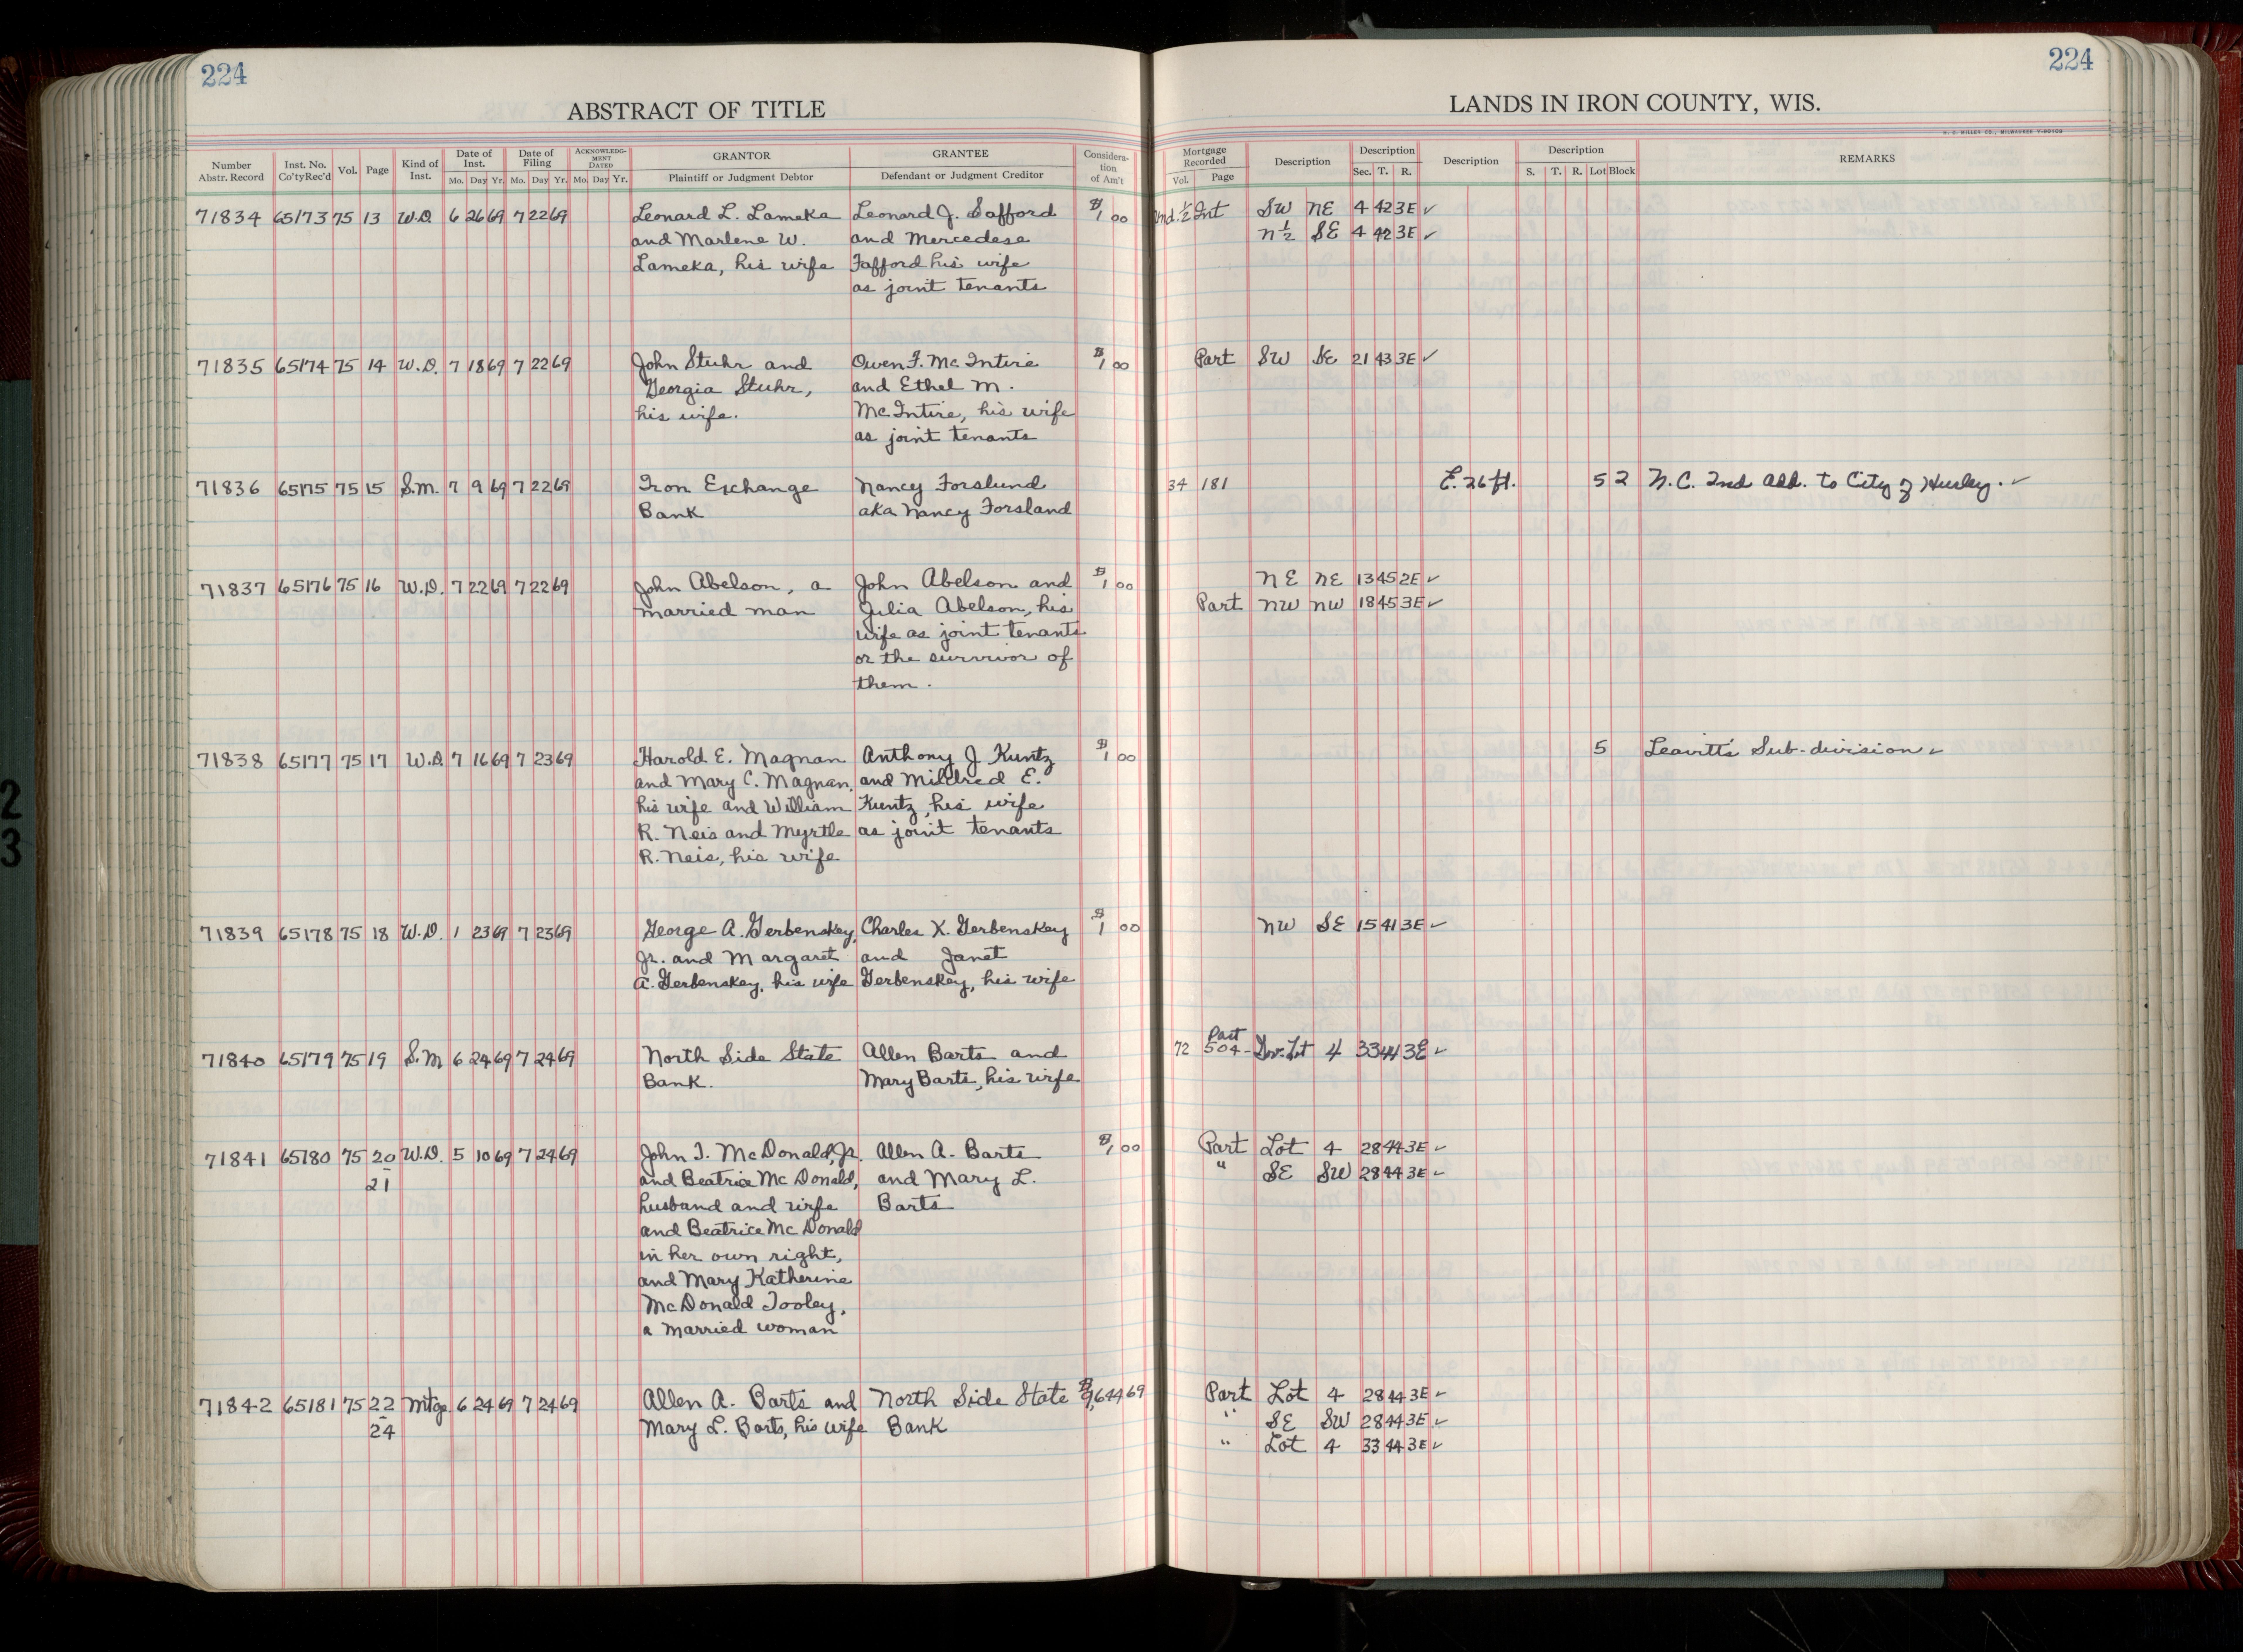 224
ABSTRACT OF TITLE
Number Abstr. Record | Inst. No. Co'ty Rec'd | Vol. | Page | Kind of Inst. | Date of Inst. Mo. Day Yr. | Date of Filing Mo. Day Yr. | ACKNOWLEDGMENT DATED Mo. Day Yr. | GRANTOR Plaintiff or Judgment Debtor | GRANTEE Defendant or Judgment Creditor | Consideration of Am't
224
LANDS IN IRON COUNTY, WIS.
H. C. MILLER CO., MILWAUKEE
Mortgage Recorded Vol. Page | Description | Description Sec. T. R. | Description | Description S. T. R. Lot Block | REMARKS
71834 65173 75 13 W.D. 6 26 69 7 22 69 Leonard L. Lameka Leonard J. Safford $1 00 Und. ½ Int SW NE 4 42 3E ✓
and Marlene W. and Mercedese N ½ SE 4 42 3E ✓
Lameka, his wife Fafford his wife
as joint tenants
71835 65174 75 14 W.D. 7 18 69 7 22 69 John Stuhr and Owen F. McIntire $1 00 Part SW SE 21 43 3E ✓
Georgia Stuhr, and Ethel M.
his wife. McIntire, his wife
as joint tenants
71836 65175 75 15 S.M. 7 9 69 7 22 69 Iron Exchange Nancy Forslund 34 181 E. 26 ft. 5 2 N.C. 2nd Add. to City of Hurley. ✓
Bank aka Nancy Forsland
71837 65176 75 16 W.D. 7 22 69 7 22 69 John Abelson, a John Abelson and $1 00 NE NE 13 45 2E ✓
married man Julia Abelson, his Part NW NW 18 45 3E ✓
wife as joint tenants
or the survivor of
them.
71838 65177 75 17 W.D. 7 16 69 7 23 69 Harold E. Magnan Anthony J Kuntz $1 00 5 Leavitt's Sub-division ✓
and Mary C. Magnan, and Mildred E.
his wife and William Kuntz, his wife
R. Neis and Myrtle as joint tenants
R. Neis, his wife
71839 65178 75 18 W.D. 1 23 69 7 23 69 George A. Gerbenskey, Charles X. Gerbenskey $1 00 NW SE 15 41 3E ✓
Jr. and Margaret and Janet
A. Gerbenskey, his wife Gerbenskey, his wife
71840 65179 75 19 S.M 6 24 69 7 24 69 North Side State Allen Barts and 72 504- Part Gov. Lot 4 33 44 3E ✓
Bank. Mary Barts, his wife
71841 65180 75 20-21 W.D. 5 10 69 7 24 69 John T. McDonald, Jr. Allen A. Barts $1 00 Part Lot 4 28 44 3E ✓
and Beatrice McDonald, and Mary L. " SE SW 28 44 3E ✓
husband and wife Barts
and Beatrice McDonald
in her own right,
and Mary Katherine
McDonald Tooley,
a married woman
71842 65181 75 22-24 Mtge 6 24 69 7 24 69 Allen A. Barts and North Side State $9,644 69 Part Lot 4 28 44 3E ✓
Mary L. Barts, his wife Bank " SE SW 28 44 3E ✓
" Lot 4 33 44 3E ✓
2
3